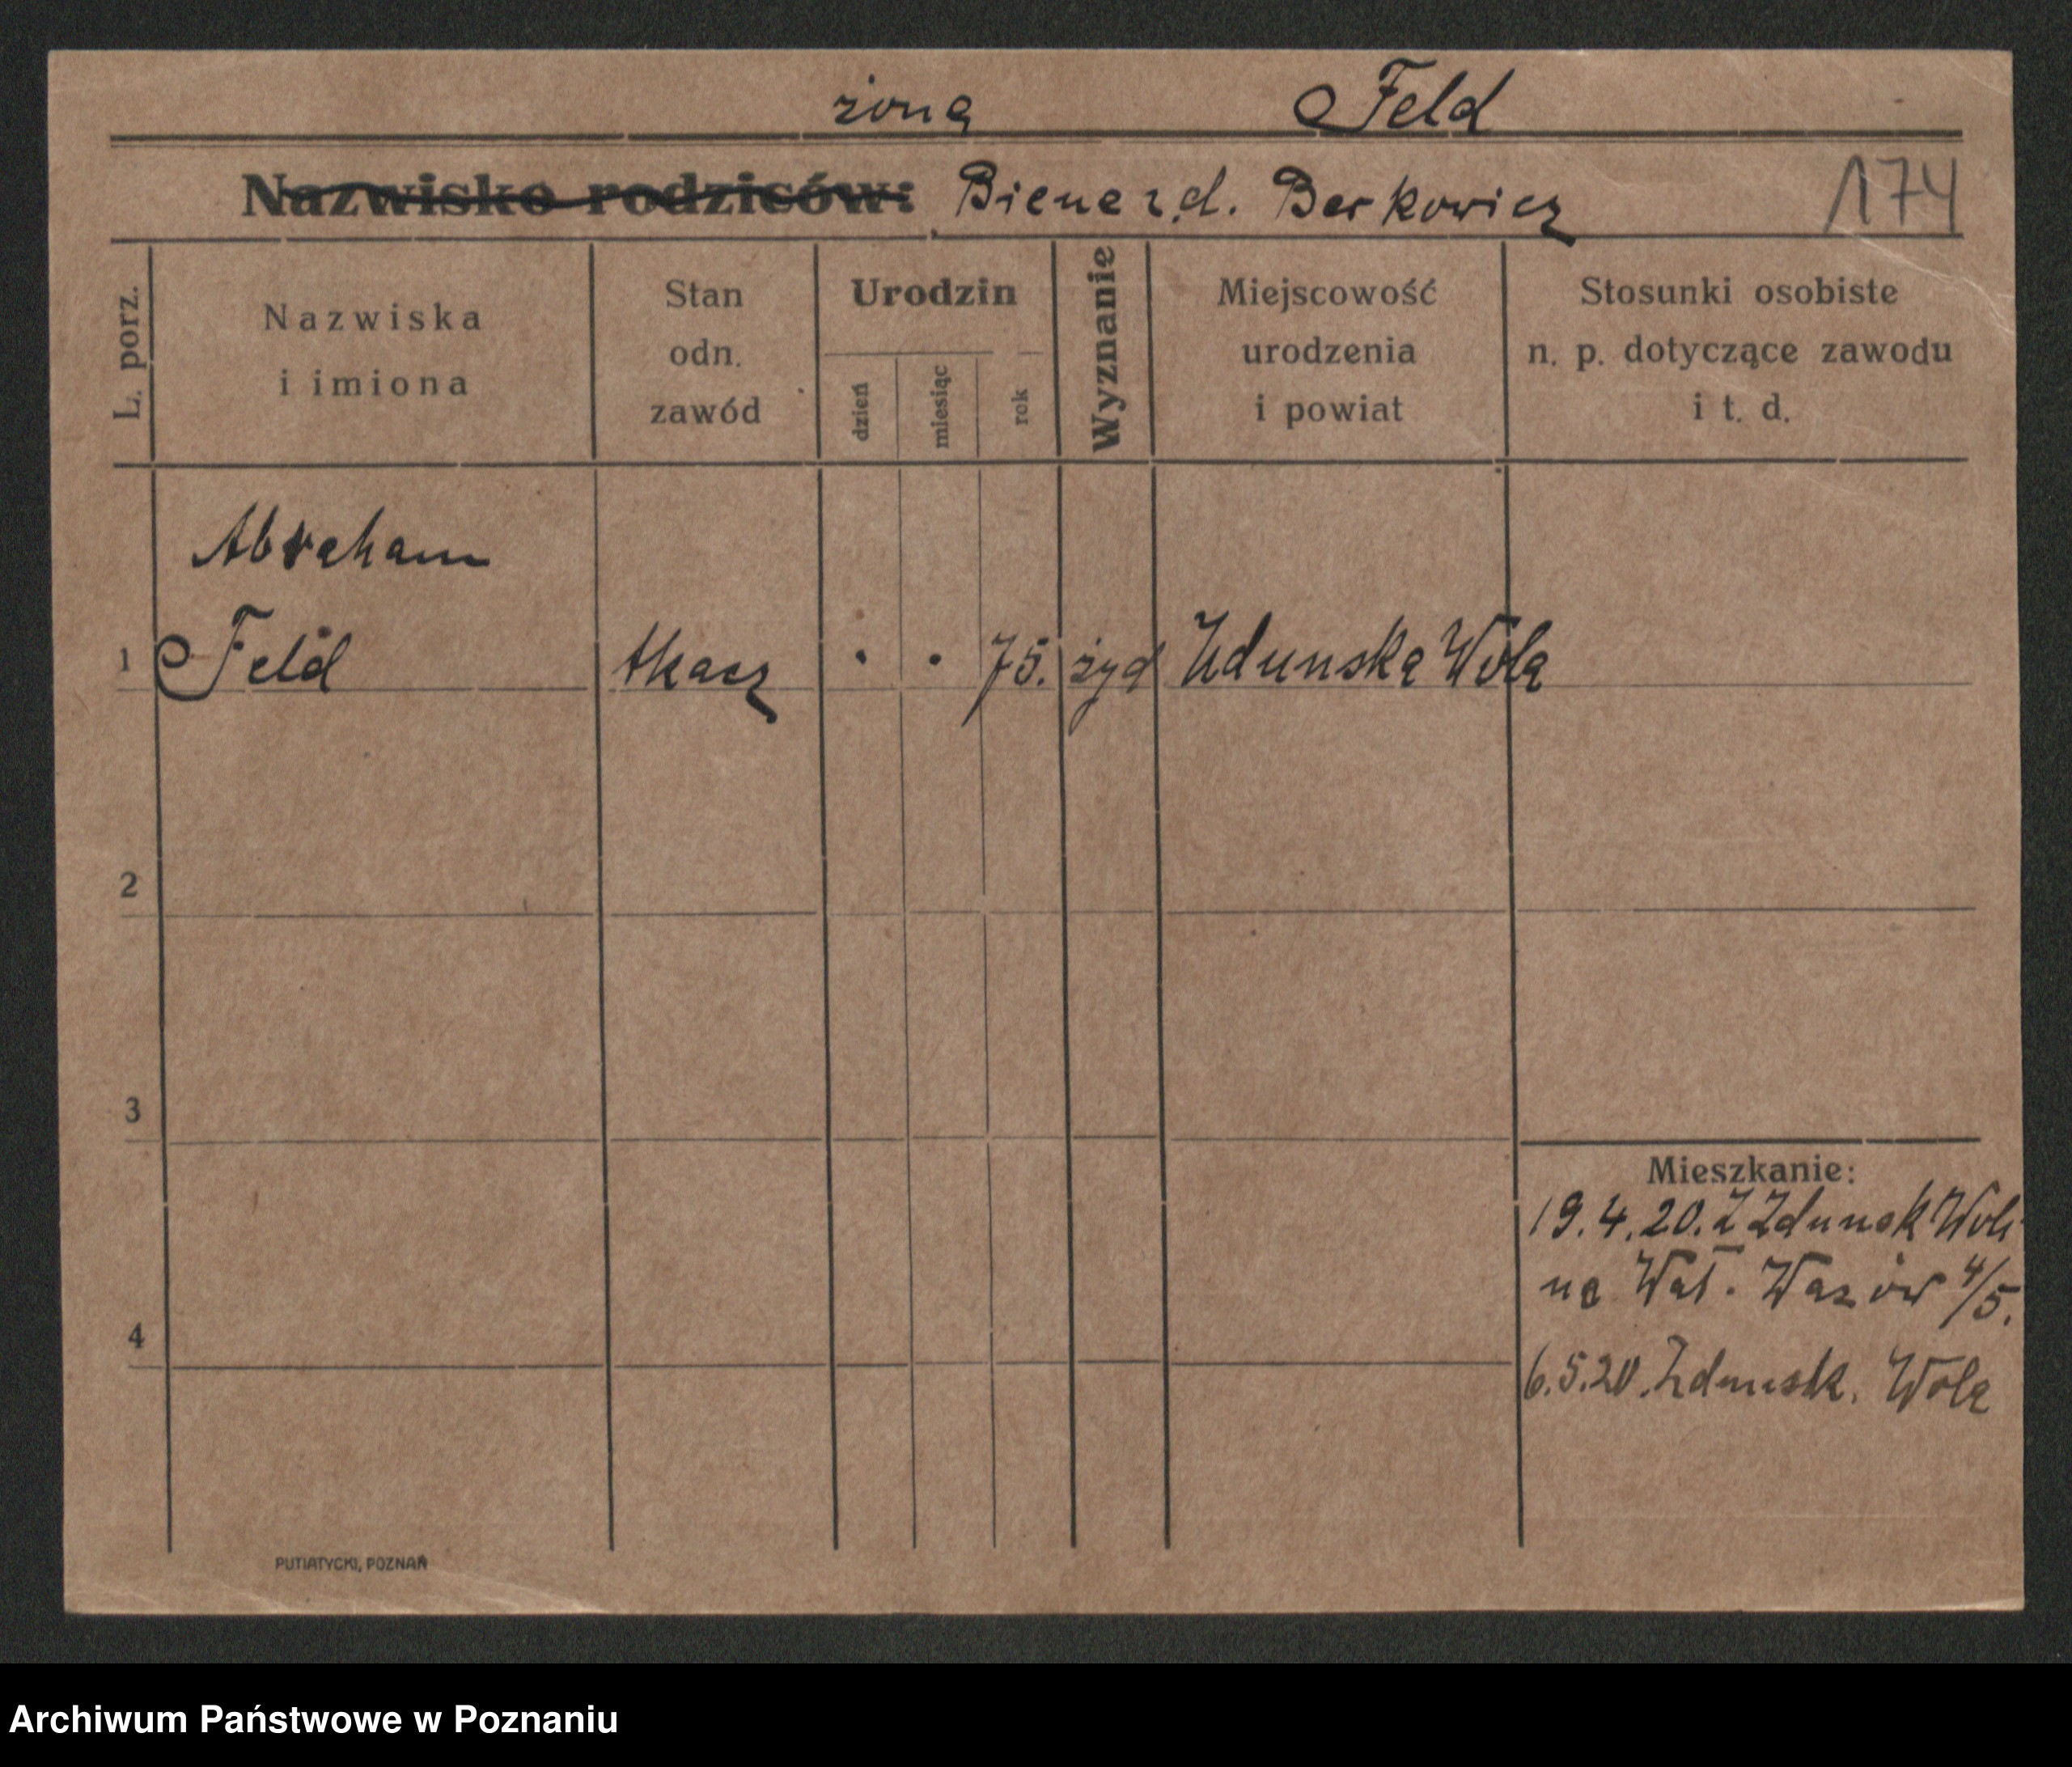 żona Feld
Nazwisko rodziców: Biene z.d. Berkowicz 174
L. porz.
Nazwiska
i imiona
Stan
odn.
zawód
Urodzin
dzień
miesiąc
rok
Wyznanie
Miejscowość
urodzenia
i powiat
Stosunki osobiste
n. p. dotyczące zawodu
i t. d.
Abraham
1 Feld tkacz . . 75. żyd Zdunska Wola
2
3
4
Mieszkanie:
19.4.20. Z Zdunsk Woli
na Wał. Wazów 4/5.
6.5.20. Zdunsk. Wola
PUTIATYCKI, POZNAŃ
Archiwum Państwowe w Poznaniu